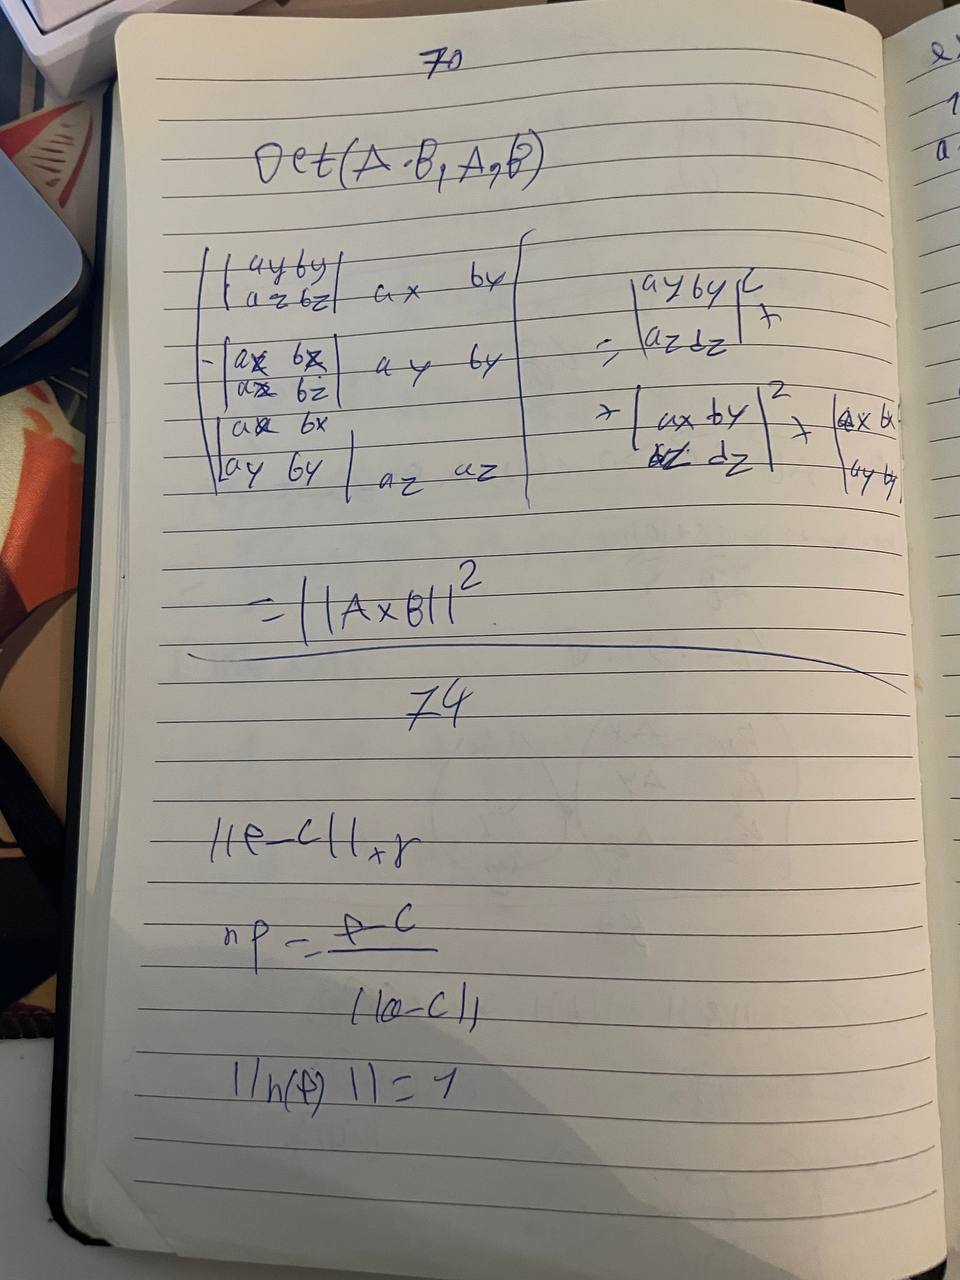 70
Det(A·B, A, B)
| |ay by| |
| |az bz| ax by |
-|ax bx| ay by
|az bz|
|ax bx|
|ay by| az az
= |ay by|² +
|az bz|
+ |ax by|² + |ax bx|
bz |ay by|
= ||A×B||²
74
||p-C||=r
np = p-C
||p-C||
||n(p)|| = 1